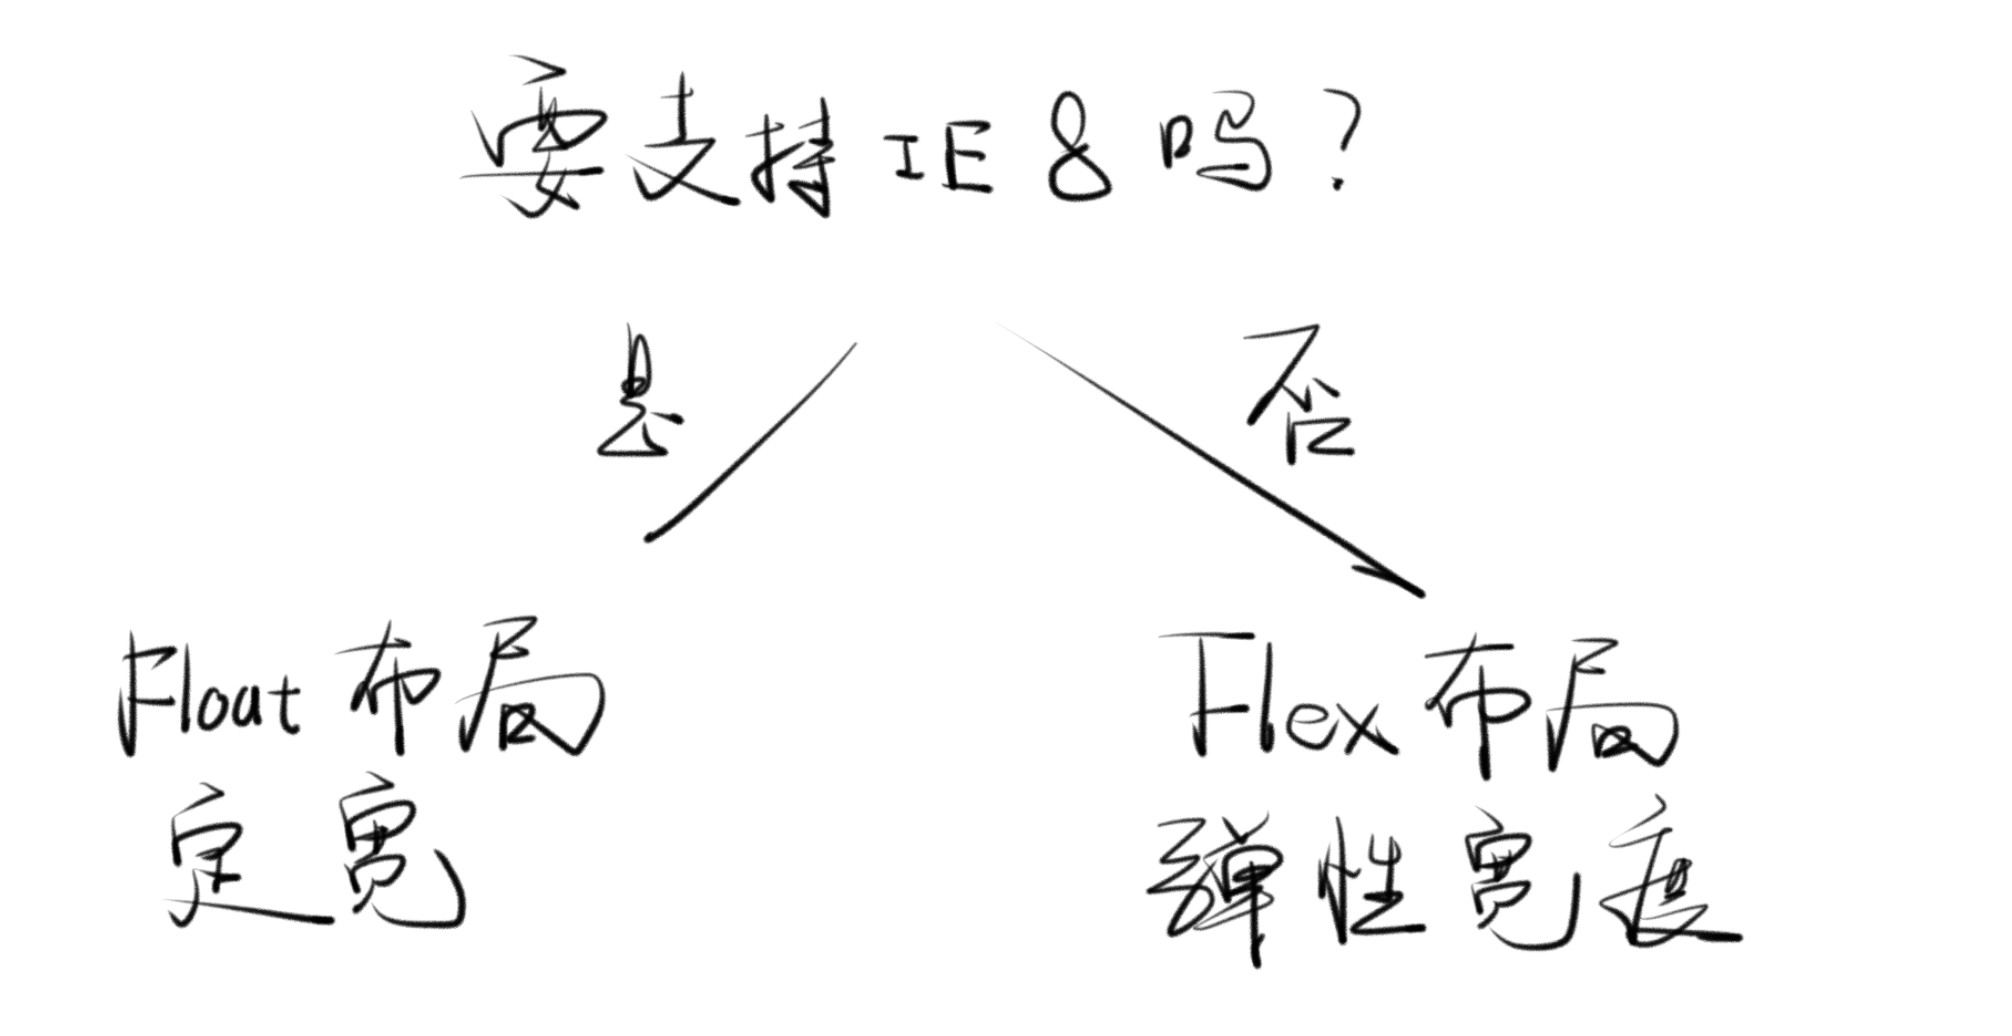 要支持 IE 8 吗?
是
否
Float 布局
定宽
Flex 布局
弹性宽度